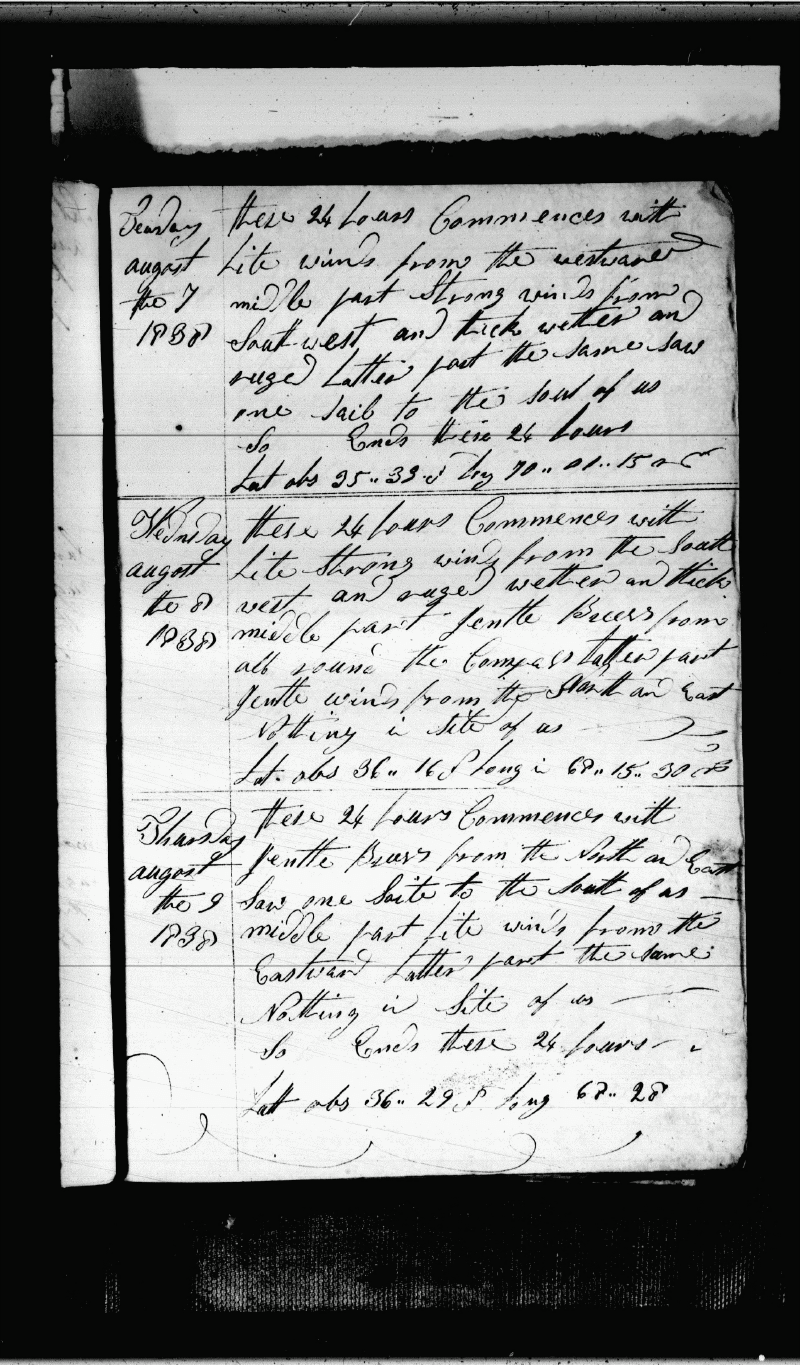 Teusday
august
the 7
1838
these 24 hours Commences with
Lite winds from the westward
middle part Strong winds from
South west and thick wether and
ruged Latter part the same saw
one sail to the sout of us
So Ends these 24 hours
Lat obs 35" 33 S Log 70" 01" 15
Wednsday
august
the 8
1838
these 24 hours Commences with
Lite Strong winds from the South
west and ruged wether and thick
middle part Jentle Breess from
all round the Compass Latter part
Jentle winds from the North and East
Nothing in Site of us
Lat. obs 36" 16 S Long in 68" 15" 30
Thursday
august
the 9
1838
these 24 hours Commences with
Jentle Breess from the North and East
Saw one Saile to the South of us
middle part Lite winds from the
Eastward Latter part the same
Nothing in Site of us
So Ends these 24 hours
Latt obs 36" 29 S Long 68" 28